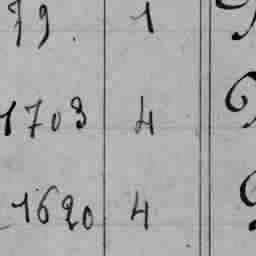 79. 1
1703 4
1620 4